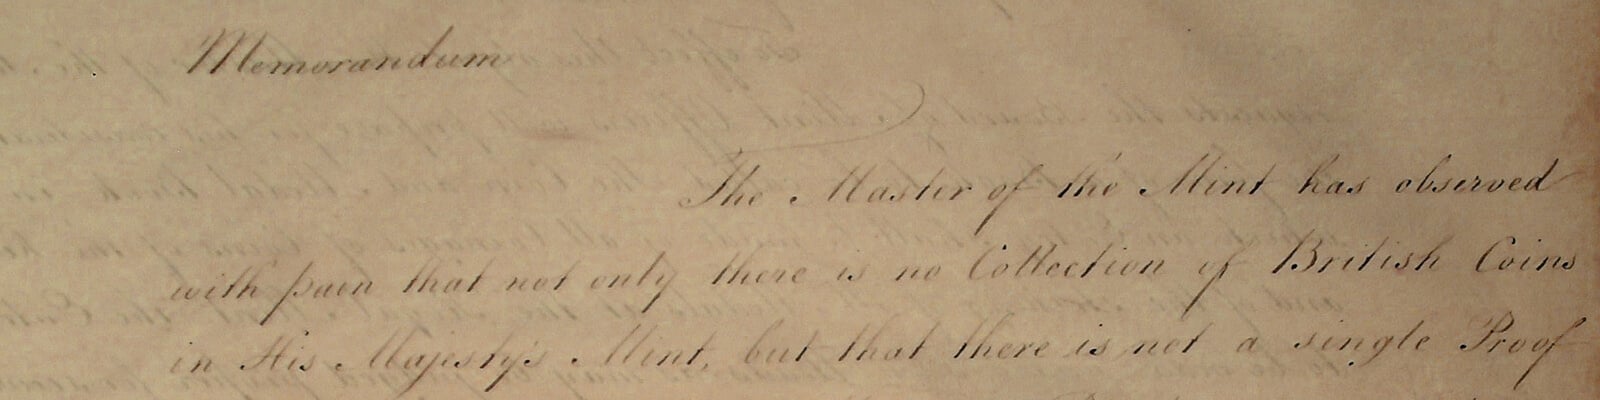 Memorandum
The Master of the Mint has observed
with pain that not only there is no Collection of British Coins
in His Majesty's Mint, but that there is not a single Proof